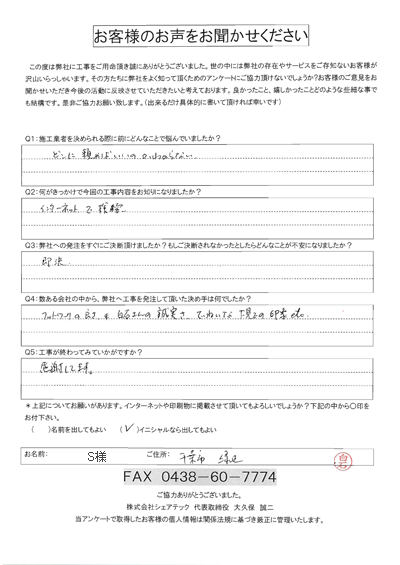 お客様のお声をお聞かせください
この度は弊社に工事をご用命頂き誠にありがとうございました。世の中には弊社の存在やサービスをご存知ないお客様が
沢山いらっしゃいます。その方たちに弊社をよく知って頂くためのアンケートにご協力頂けないでしょうか?お客様のご意見をお
聞かせいただき今後の活動に反映させていただきたいと考えております。良かったこと、嬉しかったことどのような些細な事で
も結構です。是非ご協力お願い致します。(出来るだけ具体的に書いて頂ければ幸いです)
Q1:施工業者を決められる際に前にどんなことで悩んでいましたか?
どこに頼めばいいのかわからない
Q2:何がきっかけで今回の工事内容をお知りになりましたか?
インターネットで検索
Q3:弊社への発注をすぐにご決断頂けますか?もしご決断されなかったとしたらどんなことが不安になりましたか?
即決
Q4:数ある会社の中から、弊社へ工事を発注して頂いた決め手は何でしたか?
フットワークの良さ さんの誠実さ ていねいな の印象etc.
Q5:工事が終わってみていかがですか?
感謝してます。
*上記についてお願いがあります。インターネットや印刷物に掲載させて頂いてもよろしいでしょうか?下記の中から〇印を
お付下さい。
( )名前を出してもよい (✓)イニシャルなら出してもよい
お名前: S様 ご住所: 千葉市 緑区
FAX 0438-60-7774
ご協力ありがとうございました。
株式会社シェアテック 代表取締役 大久保 誠二
当アンケートで取得したお客様の個人情報は関係法規に基づき厳正に管理いたします。